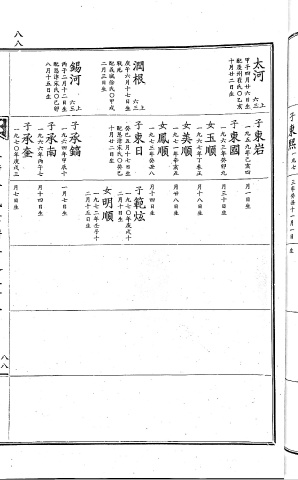 子東熙
一九七一
太河
六三上
甲子四月廿六日生
十月廿二日生
子東岩
一九五九年己亥四
月一日生
子東國
一九六三年癸卯九
月三十日生
女玉順
一九六七年丁未正
月十八日生
女美順
一九七一年辛亥五
月廿八日生
女鳳順
一九七三年癸丑八
月十四日生
潤根
六三上
庚午六月十七日生
戰死
二月三日生
子東日
十月廿二日生
子範炫
一九七〇年庚戌十
二月十日生
女明順
一九七二年壬子十
二月十五日生
錫河
六三上
丙子二月十二日生
八月十五日生
子承鎬
一九六四年甲辰十
一月七日生
子承南
一九六六年丙午七
月十四日生
子承金
一九七〇年庚戌三
月七日生
八八
八八